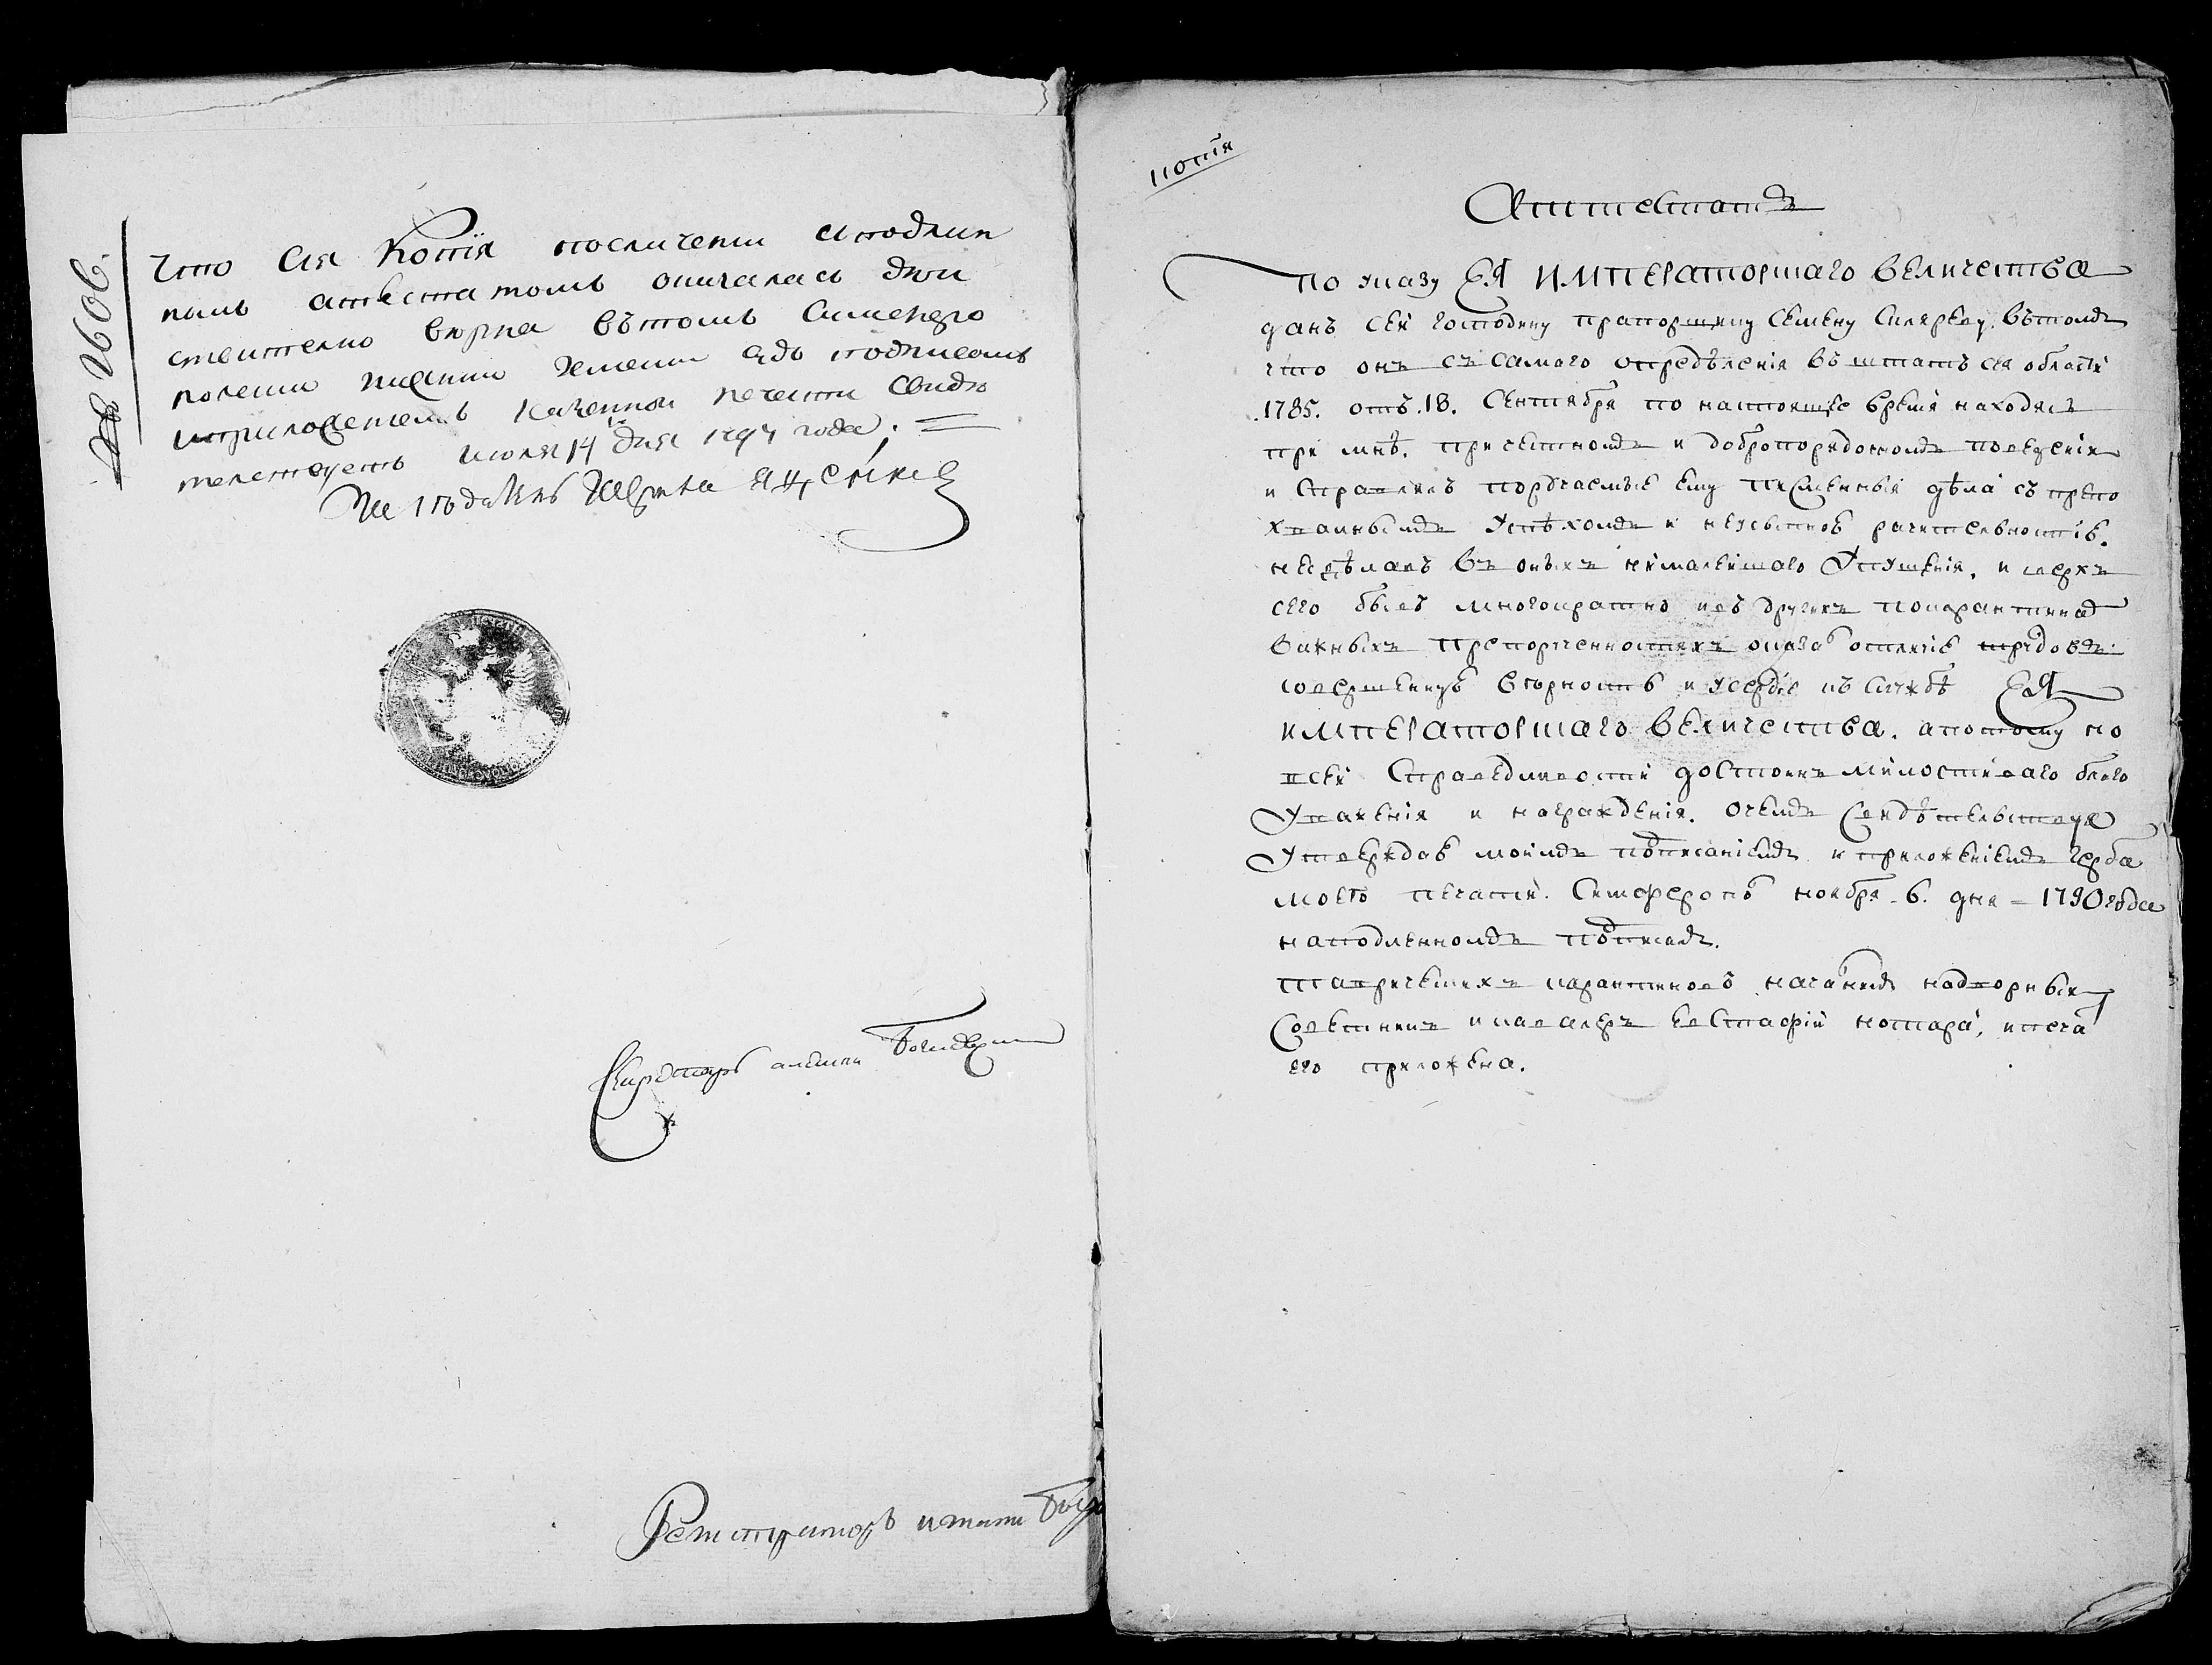 № 2608.
Что Сия Копия посличении сподлин
нымъ атестатомъ оказалась дѣй
ствително вѣрна вътомъ Симферо
полской нижний Земский судъ подписомъ
иприложениемъ казенной печати свидѣ
телствуетъ июля 14 дня 1794 года.
Секретарь алексей
Регистраторъ
копия
Аттестатъ
по указу ЕЯ ИМПЕРАТОРСКАГО ВЕЛИЧЕСТВА
данъ сей господину прапорщику Семену Скляреву. вътомъ
что онъ съ самаго определѣния въ штатъ сея области
1785. отъ .18. Сентября по настоящее время находясь
при мнѣ. при честномъ и добропорядочномъ поведении
и справлялъ поручаемые ему писменныя дѣла съ препо
хвалнымъ успѣхомъ и неусыпною рачительностию.
недѣлавъ въ оныхъ ни малейшаго упущения, и сверхъ
сего былъ многократно и въ другихъ покарантинаⷨ
важныхъ препорученностяхъ оказавъ отличие трудовъ
совершенную вѣрность и усердие къ службѣ ЕЯ
ИМПЕРАТОРСКАГО ВЕЛИЧЕСТВА. апотому по
всей Справедливости достоинъ милостиваго благо
уважения и награждения. Очемъ свидѣтельствуя
утверждаю моимъ подписаниемъ и приложениемъ герба
моего печати. Симферополь ноября 6. дня 1790 года
наподленномъ подписалъ.
таврическихъ карантиновъ началникъ надворный
Советникъ икавалеръ Евстафий нотара, ипеча
его приложена.